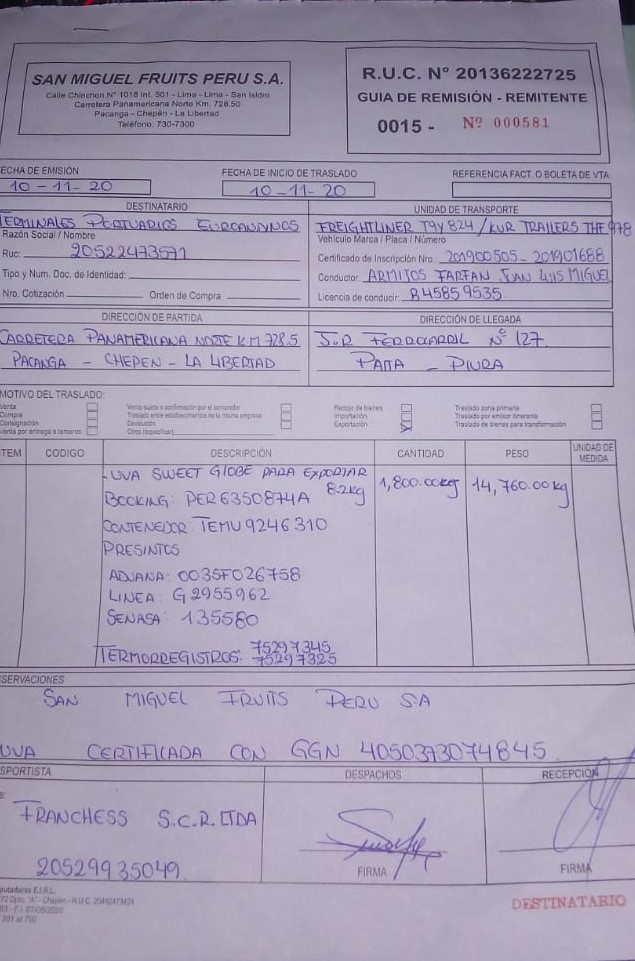 SAN MIGUEL FRUITS PERU S.A.
Calle Chinchon N° 1018 Int. 501 - Lima - Lima - San Isidro
Carretera Panamericana Norte Km. 728.50
Pacanga - Chepén - La Libertad
Teléfono: 730-7300
R.U.C. N° 20136222725
GUIA DE REMISIÓN - REMITENTE
0015 - Nº 000581
ECHA DE EMISIÓN
10-11-20
FECHA DE INICIO DE TRASLADO
10-11-20
REFERENCIA FACT. O BOLETA DE VTA.
DESTINATARIO
TERMINALES PORTUARIOS EUROANDINOS
Razón Social / Nombre
Ruc: 20522473571
Tipo y Num. Doc. de Identidad:
Nro. Cotización Orden de Compra
UNIDAD DE TRANSPORTE
FREIGHTLINER T9Y 824 / KUR TRAILERS THF 978
Vehículo Marca / Placa / Número
Certificado de Inscripción Nro.: 201900505 - 201901688
Conductor: ARMITOS FARFAN JUAN LUIS MIGUEL
Licencia de conducir: B45859535
DIRECCIÓN DE PARTIDA
CARRETERA PANAMERICANA NOTE KM 728.5
PACANGA - CHEPEN - LA LIBERTAD
DIRECCIÓN DE LLEGADA
JR FERROCARRIL Nº 127
PAITA - PIURA
MOTIVO DEL TRASLADO:
Venta
Compra
Consignación
Venta por entrega a terceros
Venta sujeta a confirmación por el comprador
Traslado entre establecimientos de la misma empresa
Devolución
Otros (especificar)
Recojo de bienes
Importación
Exportación
Traslado zona primaria
Traslado por emisor itinerante
Traslado de bienes para transformación
TEM CODIGO DESCRIPCIÓN CANTIDAD PESO UNIDAD DE MEDIDA
UVA SWEET GLOBE PARA EXPORTAR 8.2kg 1,800.00kg 14,760.00kg
BOOKING: PER6350874A
CONTENEDOR: TEMU 9246310
PRESINTOS
ADUANA: 0035F026758
LINEA: G2955962
SENASA: 135580
TERMORREGISTROS: 75297345
75297325
SERVACIONES
SAN MIGUEL FRUITS PERU S.A
UVA CERTIFICADA CON GGN 4050373074845
SPORTISTA
FRANCHESS S.C.R. LTDA
20529935049
DESPACHOS
FIRMA
RECEPCIÓN
FIRMA
putadoras E.I.R.L.
72 Dpto. "A" - Chepén - R.U.C. 20482473424
DESTINATARIO